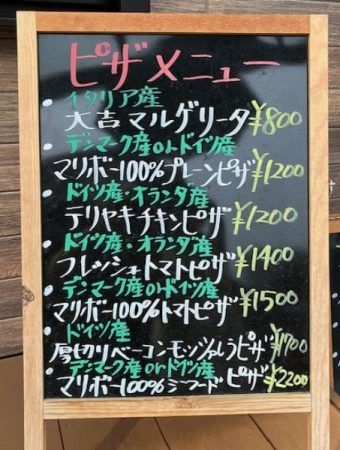 ピザメニュー
・イタリア産
大吉マルゲリータ ¥800
・デンマーク産orドイツ産
マリボー100%プレーンピザ ¥1200
・ドイツ産・オランダ産
テリヤキチキンピザ ¥1200
・ドイツ産・オランダ産
フレッシュトマトピザ ¥1400
・デンマーク産orドイツ産
マリボー100%トマトピザ ¥1500
・ドイツ産
厚切りベーコンモッツァレラピザ ¥1700
・デンマーク産orドイツ産
マリボー100%シーフードピザ ¥2200